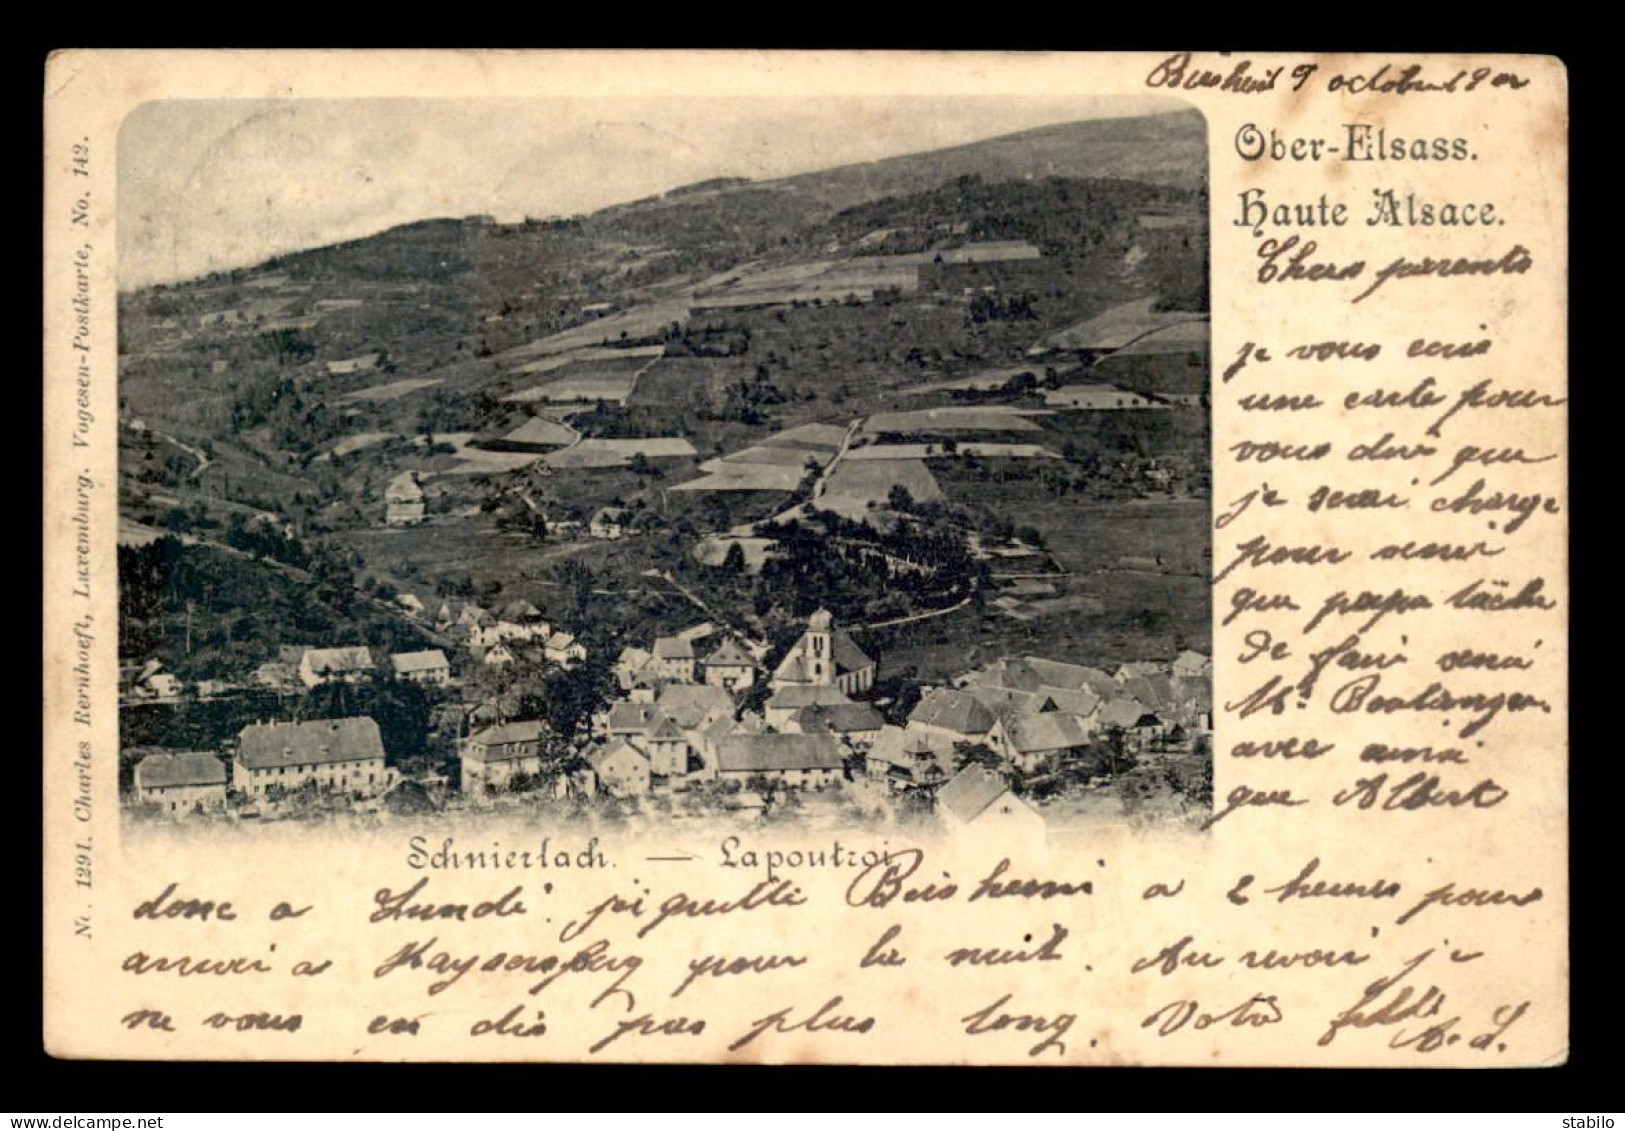 9 octobre
Ober-Elsass.
Haute Alsace.
Chers parents
je vous ecris
une carte pour
vous dire que
je serai charge
pour venir
que papa tâche
de faire venir
Mr Boulanger
avec ainsi
que Albert
Schnierlach. — Lapoutroi
donc a Lundi. j'ai quitté a 2 heures pour
arriver a Kaysersberg pour la nuit. Au revoir je
ne vous en dis pas plus long. Votre fille
A. J.
Nr. 1291. Charles Bernhoeft, Luxemburg. Vogesen-Postkarte, No. 142.
stabylo